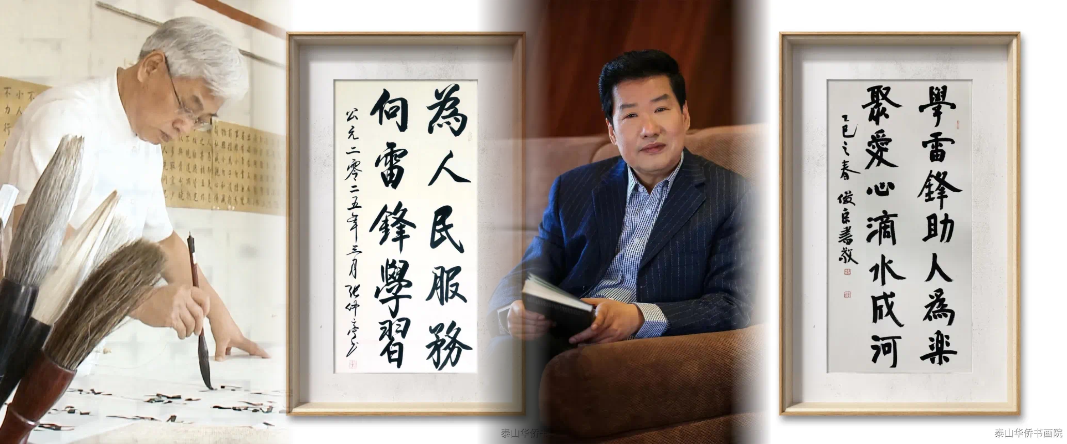 為人民服務
向雷鋒學習
公元二零二五年三月
泰山华侨书画院
學雷鋒助人爲楽
聚愛心滴水成河
乙巳之春
泰山华侨书画院